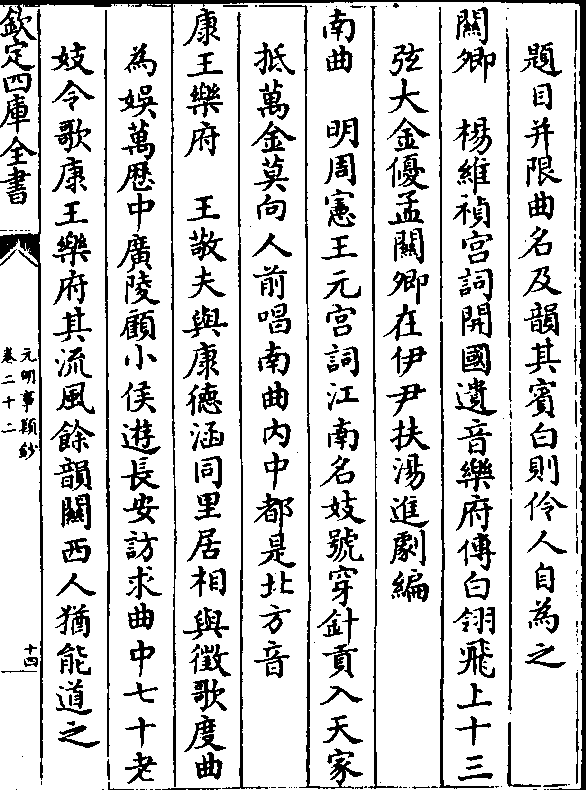 題目并限曲名及韻其賓白則伶人自為之
關卿　楊維禎宫詞開國遺音樂府傳白翎飛上十三
弦大金優孟關卿在伊尹扶湯進劇編
南曲　明周憲王元宫詞江南名妓號穿針貢入天家
抵萬金莫向人前唱南曲内中都是北方音
康王樂府　王敬夫與康德涵同里居相與徵歌度曲
為娛萬歷中廣陵顧小侯遊長安訪求曲中七十老
妓令歌康王樂府其流風餘韻關西人猶能道之
欽定四庫全書
元明事類鈔
卷二十二
十四